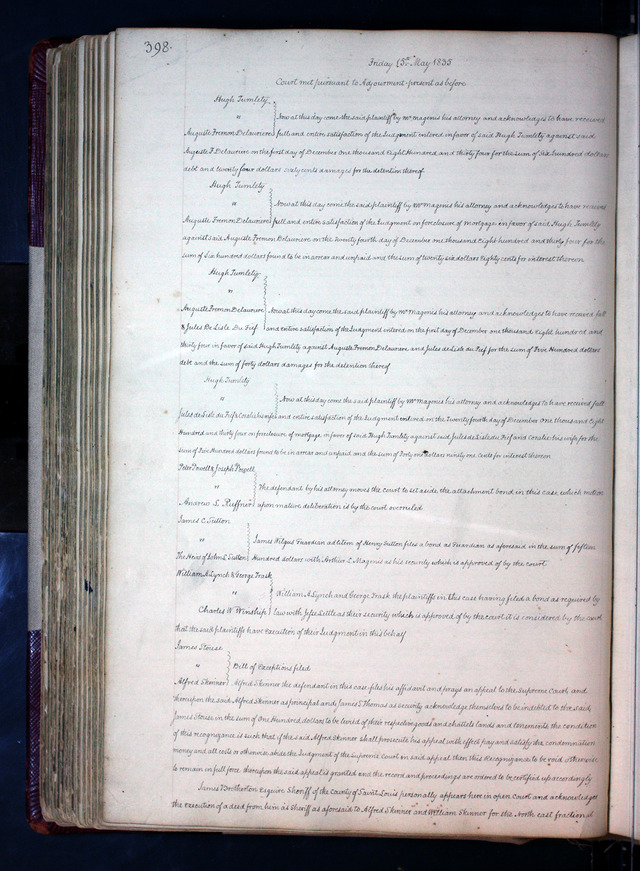 398.
Friday 15th May 1835
Court met pursuant to Adjournment present as before
Hugh Tumlety
"
Now at this day come the said plaintiff by Mr Magenis his attorney and acknowledges to have received
Auguste Fremon Delauriere full and entire satisfaction of the Judgment entered in favor of said Hugh Tumlety against said
Auguste F. Delauriere on the first day of December One thousand Eight Hundred and thirty four for the sum of Six hundred dollars
debt and twenty four dollars sixty cents damages for the detention thereof
Hugh Tumlety
"
Now at this day come the said plaintiff by Mr Magenis his attorney and acknowledges to have received
Auguste Fremon Delauriere full and entire satisfaction of the Judgment on foreclosure of mortgage in favor of said Hugh Tumlety
against said Auguste Fremon Delauriere on the twenty fourth day of December one thousand Eight hundred and thirty four for the
sum of Six hundred dollars found to be in arrear and unpaid and the sum of twenty six dollars Eighty cents for interest thereon
Hugh Tumlety
"
Auguste Fremon Delauriere Now at this day come the said plaintiff by Mr Magenis his attorney and acknowledges to have received full
& Jules De Lisle Du Fief and entire satisfaction of the Judgment entered on the first day of December one thousand Eight hundred and
thirty four in favor of said Hugh Tumlety against Auguste Fremon Delauriere and Jules de Lisle du Fief for the sum of Five Hundred dollars
debt and the sum of forty dollars damages for the detention thereof
Hugh Tumlety
"
Now at this day come the said plaintiff by Mr Magenis his attorney and acknowledges to have received full
Jules de Lisle du Fief & his wife and entire satisfaction of the Judgment entered on the Twenty fourth day of December One thousand Eight
Hundred and thirty four on foreclosure of mortgage in favor of said Hugh Tumlety against said Jules de Lisle du Fief and his wife for the
sum of Five Hundred dollars found to be in arrear and unpaid and the sum of Forty one dollars ninety one cents for interest thereon
Peter Powell & Joseph Powell
"
The defendant by his attorney moves the court to set aside the attachment bond in this case which motion
Andrew L. Ruffner upon mature deliberation is by the court overruled
James C. Sutton
"
James Wilgus Guardian ad litem of Henry Sutton files a bond as Guardian as aforesaid in the sum of fifteen
The Heirs of John L Sutton Hundred dollars with Arthur L Magenis as his security which is approved of by the court
William A Lynch & George Trask
"
William A Lynch and George Trask the plaintiffs in this case having filed a bond as required by
Charles W. Winship law with Jesse Little as their security which is approved of by the court it is considered by the court
that the said plaintiffs have Execution of their Judgment in this behalf
James Stouse
"
Bill of Exceptions filed
Alfred Skinner Alfred Skinner the defendant in this case files his affidavit and prays an appeal to the Supreme Court and
thereupon the said Alfred Skinner as principal and James S Thomas as security acknowledge themselves to be indebted to the said
James Stouse in the sum of One Hundred dollars to be levied of their respective goods and chattels lands and tenements the condition
of this recognizance is such that if the said Alfred Skinner shall prosecute his appeal with effect pay and satisfy the condemnation
money and all costs or otherwise abide the Judgment of the Supreme Court on said appeal then this Recognizance to be void otherwise
to remain in full force thereupon the said appeal is granted and the record and proceedings are ordered to be certified up accordingly
James Brotherton Esquire Sheriff of the County of Saint Louis personally appears here in open Court and acknowledges
the execution of a deed from him as Sheriff as aforesaid to Alfred Skinner and William Skinner for the North east fractional